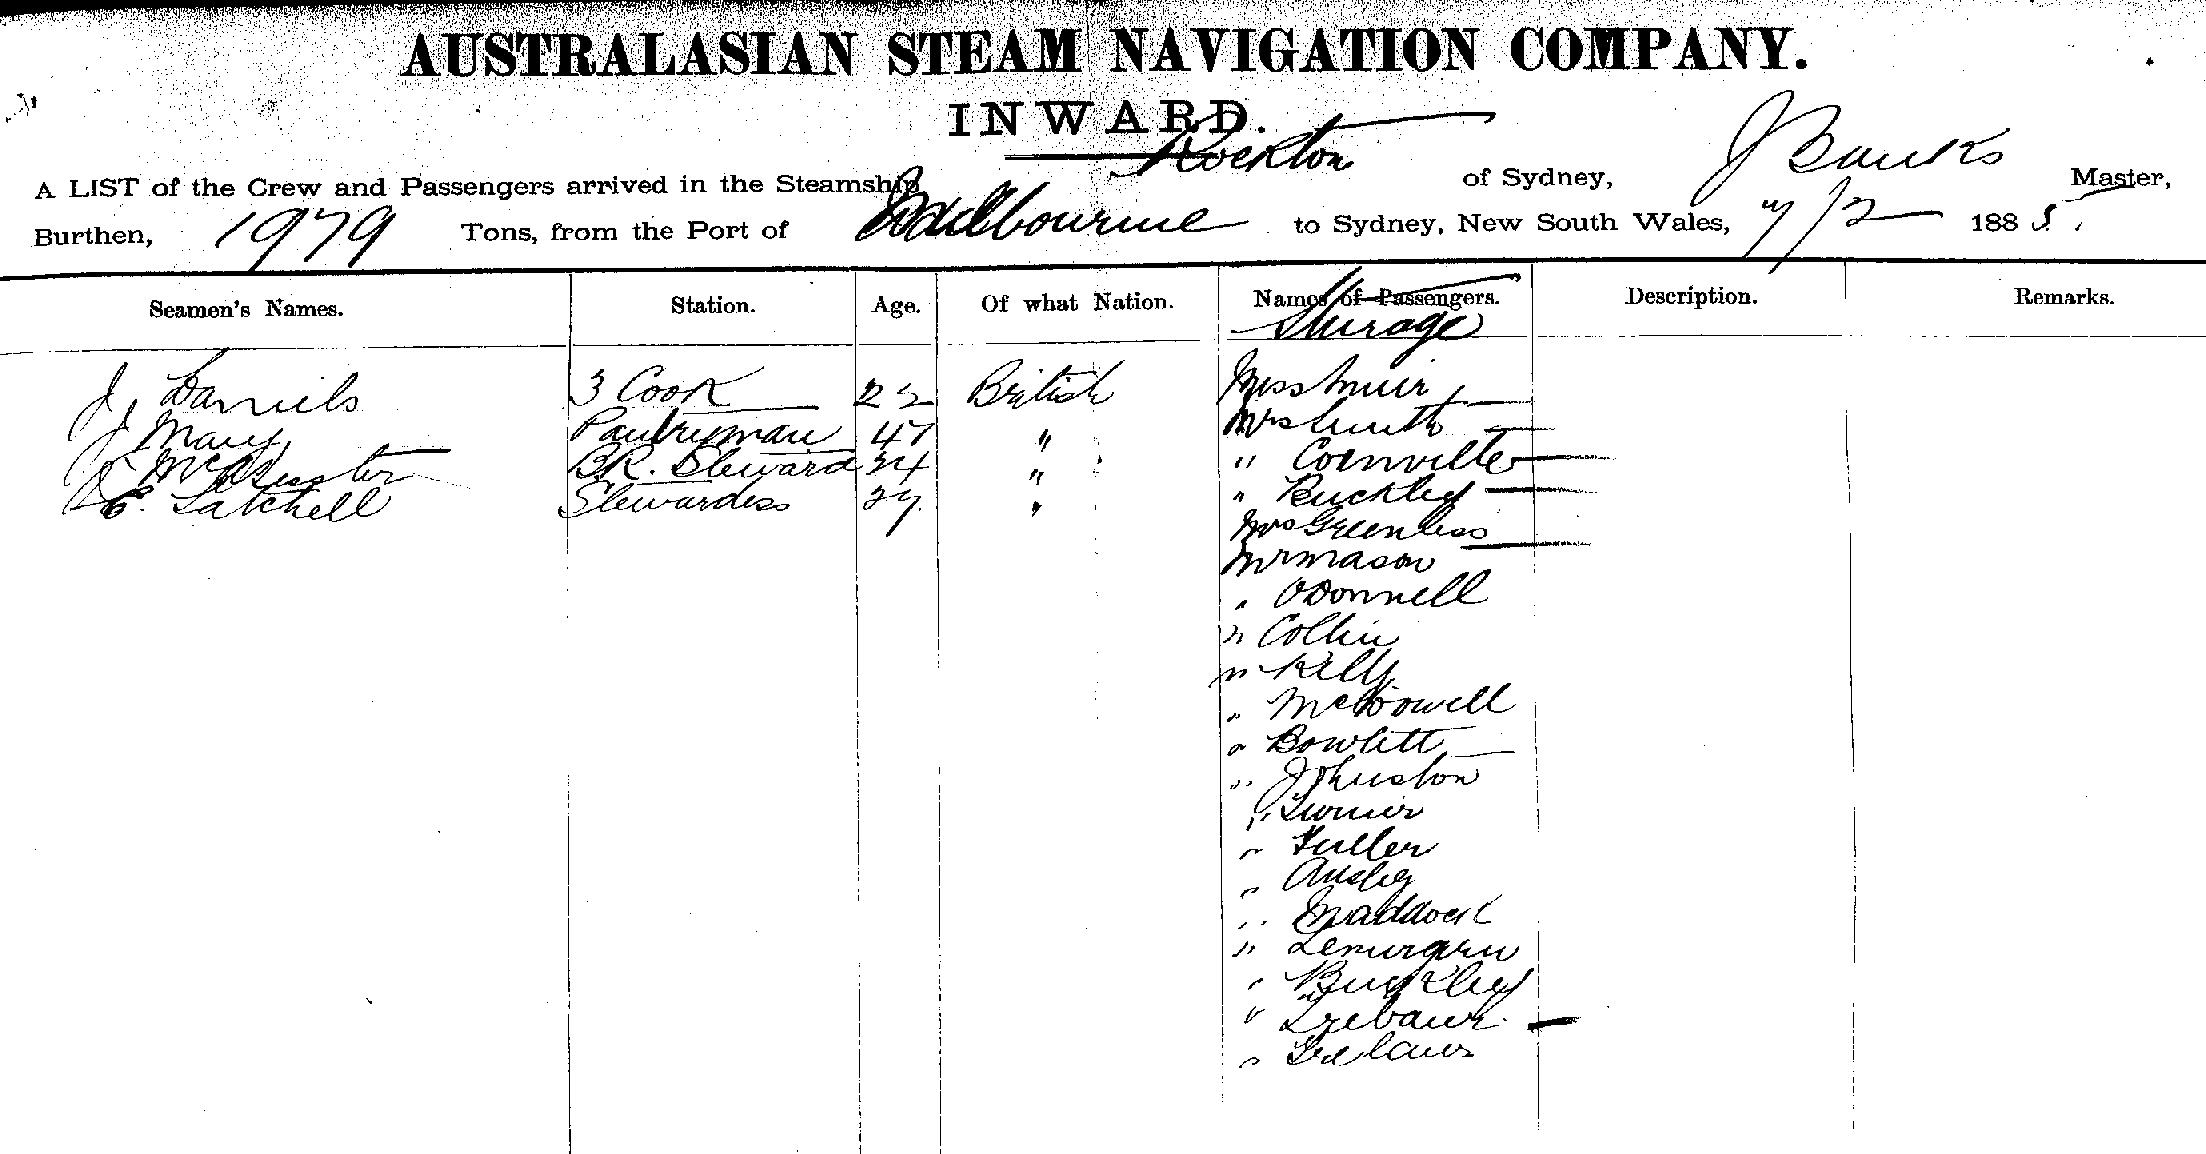 AUSTRALASIAN STEAM NAVIGATION COMPANY.
INWARD.
A LIST of the Crew and Passengers arrived in the Steamship Rockton of Sydney, J Banks Master,
Burthen, 1979 Tons, from the Port of Melbourne to Sydney, New South Wales, 7/2 1885.
Seamen's Names. Station. Age. Of what Nation. Names of Passengers. Description. Remarks.
Steerage
J, Daniels 3 Cook 22 British Miss Muir
J Pantryman 47 " Mrs Smith
BR. Steward 24 " "
E. Satchell Stewardess 27 " " Buckley
Mrs Greenless
Mr Mason
" ODonnell
" Collin
" Kelly
" McDowell
" Bowlett
" Johnston
" Turner
" Fuller
" Ansley
" Maddock
"
" Buckley
"
"